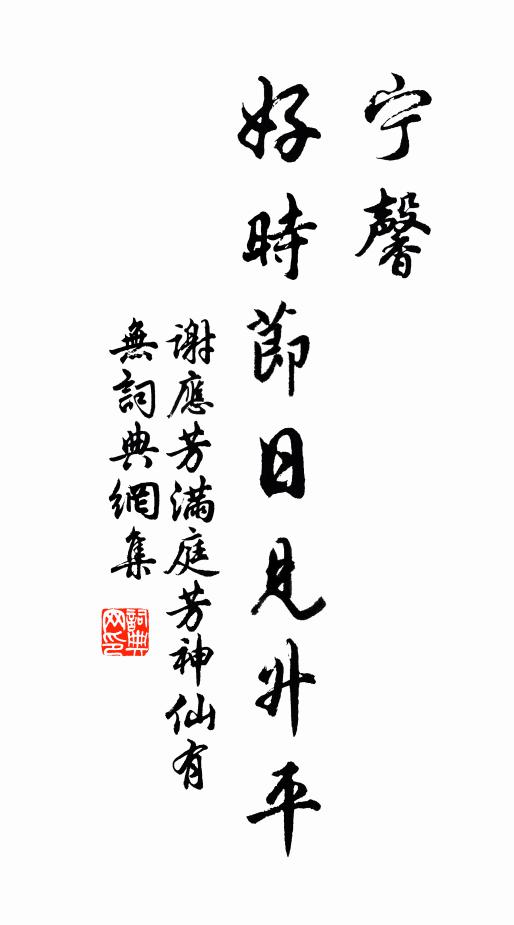 宁馨
好時節日見升平
謝應芳滿庭芳神仙有
無詞典網集
詞典
网印